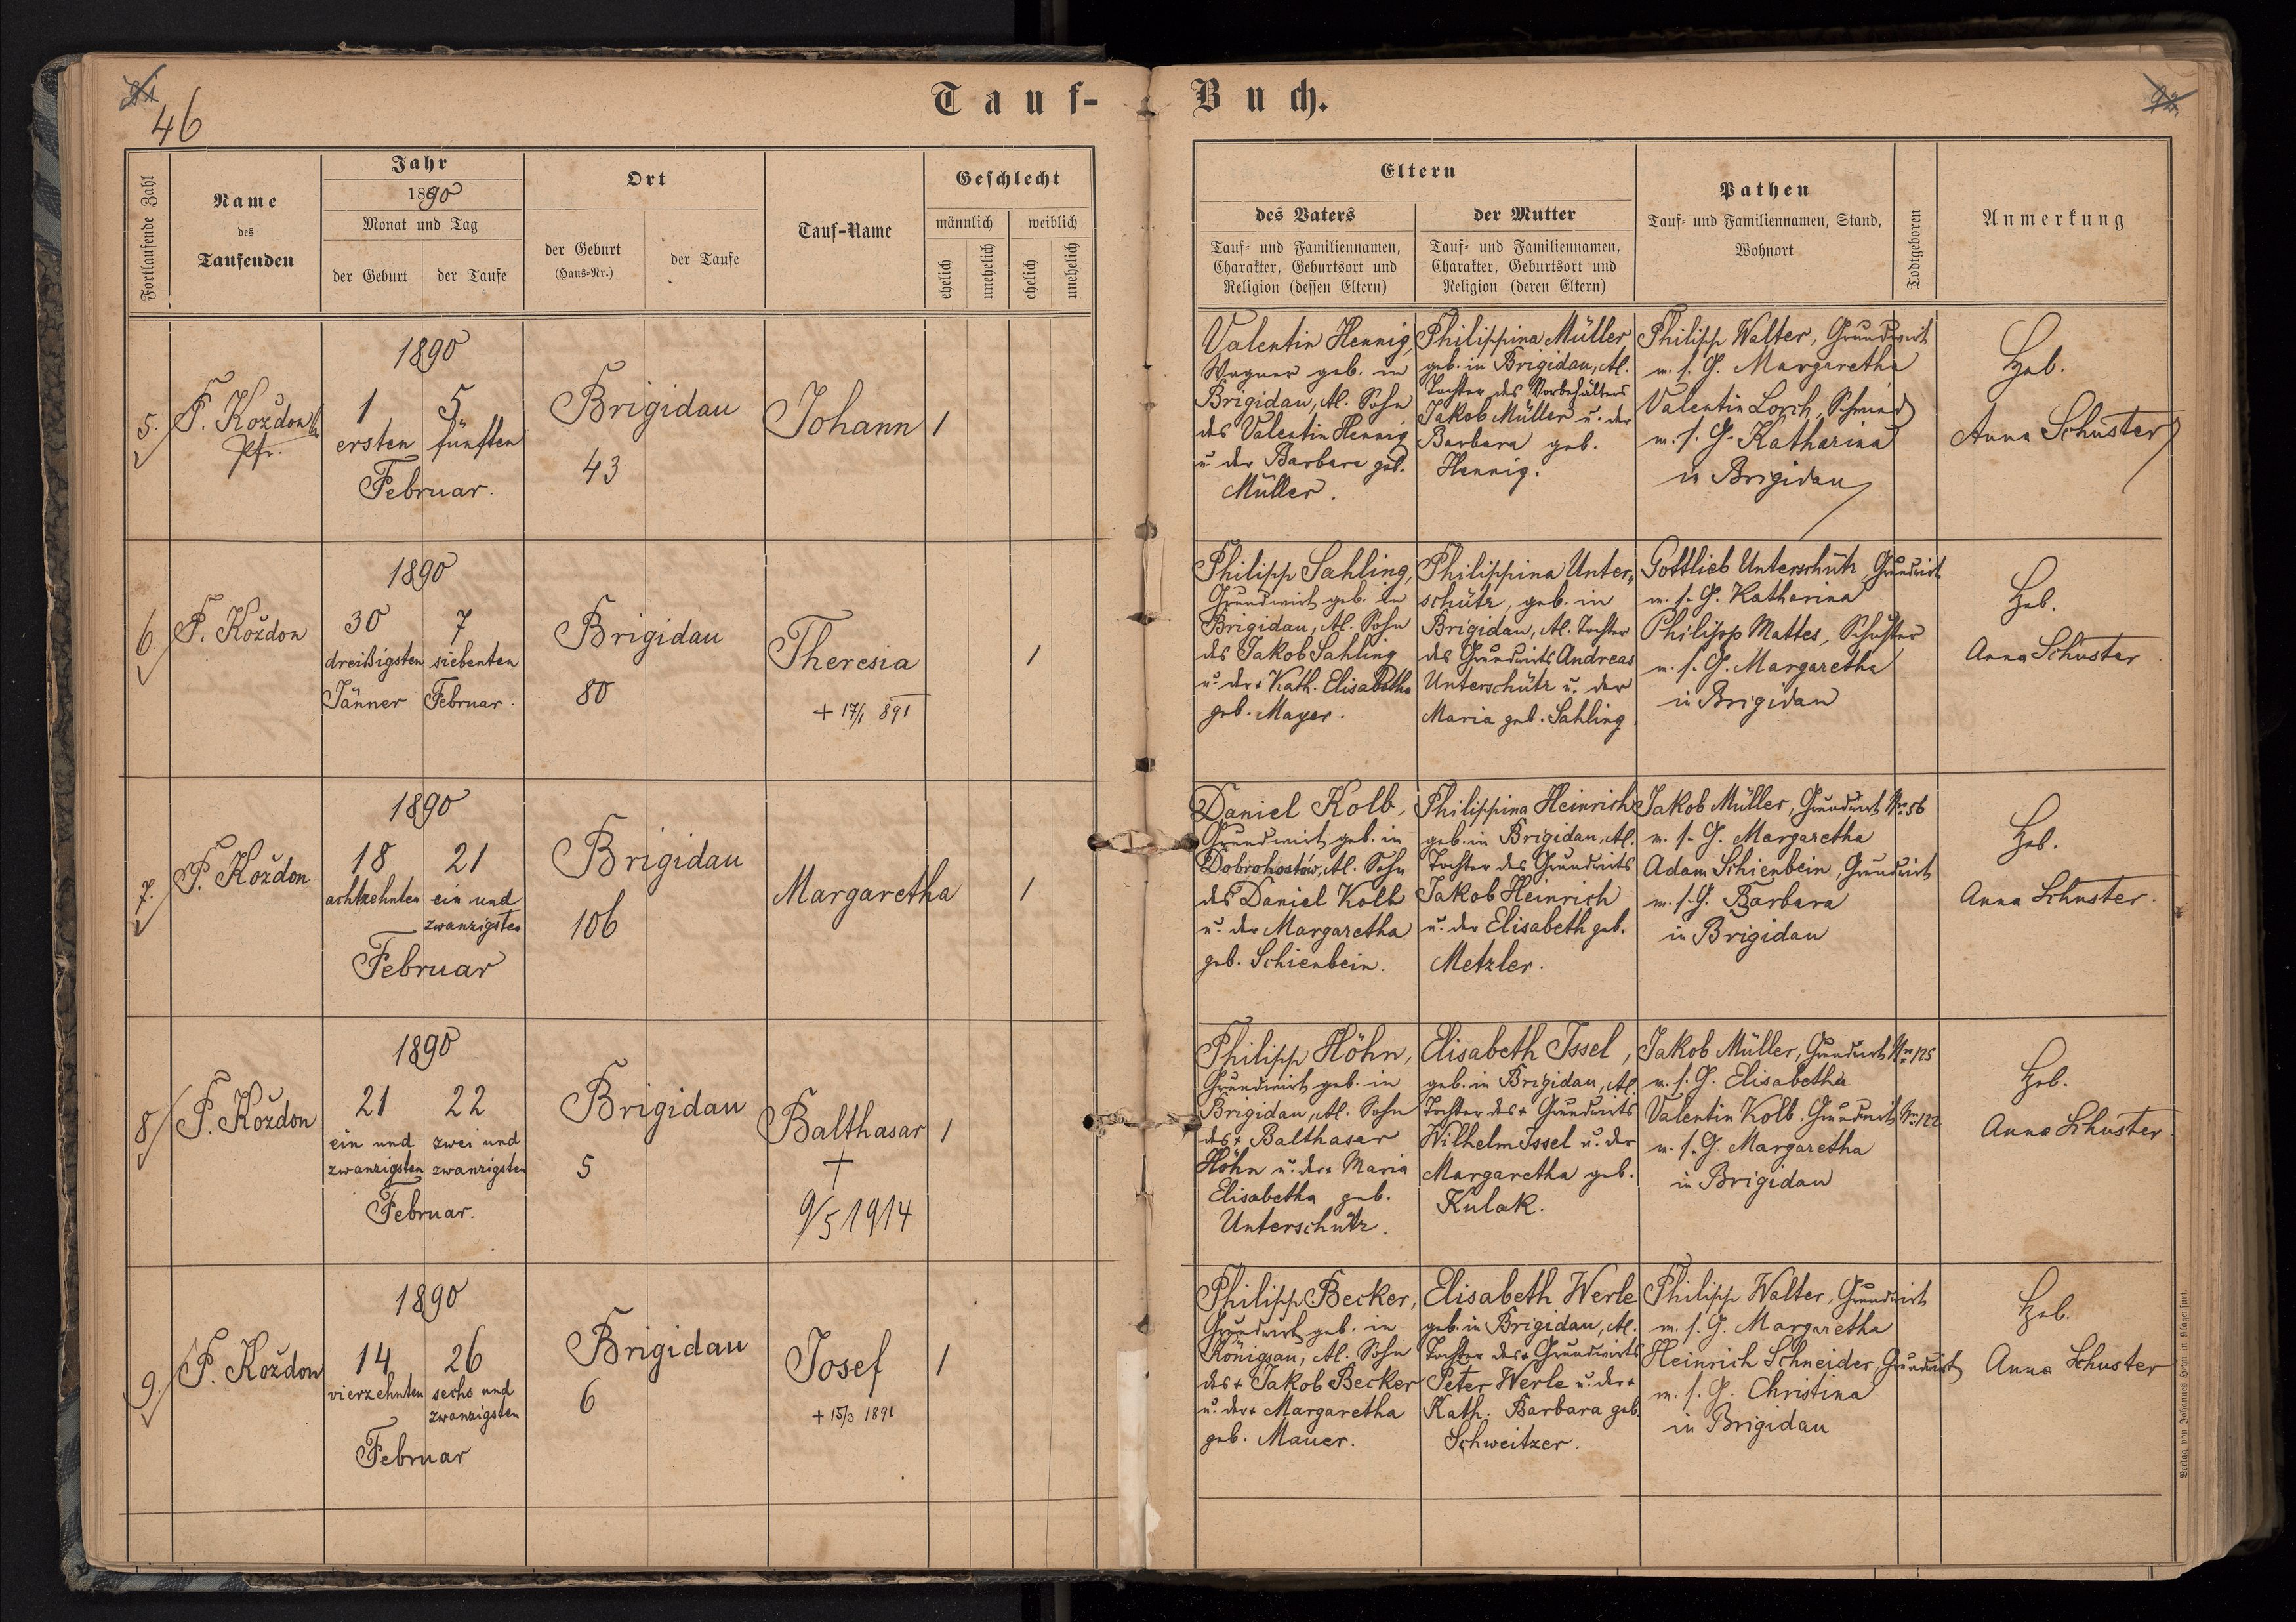 46
Tauf-Buch.
Fortlaufende Zahl
Name
des
Taufenden
Jahr
1890
Monat und Tag
der Geburt
der Taufe
Ort
der Geburt
(Haus-Nr.)
der Taufe
Tauf-Name
Geschlecht
männlich
weiblich
ehelich
unehelich
ehelich
unehelich
Eltern
des Vaters
Tauf- und Familiennamen,
Charakter, Geburtsort und
Religion (dessen Eltern)
der Mutter
Tauf- und Familiennamen,
Charakter, Geburtsort und
Religion (deren Eltern)
Pathen
Tauf- und Familiennamen, Stand,
Wohnort
Todtgeboren
Anmerkung
5.
F. Koždon
Pfr.
1890
1
5
ersten
fünften
Februar.
Brigidau
43
Johann
1
Valentin Hennig,
Wagner geb. in
Brigidau, Al. Sohn
des Valentin Hennig
u. der Barbara geb.
Müller.
Philippina Müller
geb. in Brigidau, Al.
Tochter des Vorbehälters
Jakob Müller u. der
Barbara geb.
Hennig.
Philipp Walter, Grundwirt
m. s. G. Margaretha
Valentin Lorch, Schmied
m. s. G. Katharina
in Brigidau
Heb.
Anna Schuster
6.
F. Koždon
1890
30
7
dreißigsten
siebenten
Jänner
Februar.
Brigidau
80
Theresia
+ 17/1 891
1
Philipp Sahling,
Grundwirt geb. in
Brigidau, Al. Sohn
des Jakob Sahling
u. der + Kath. Elisabetha
geb. Mayer.
Philippina Unter-
schütz, geb. in
Brigidau, Al. Tochter
des Grundwirts Andreas
Unterschütz u. der
Maria geb. Sahling
Gottlieb Unterschütz, Grundwirt
m. s. G. Katharina
Philipp Mattes, Schuster
m. s. G. Margaretha
in Brigidau
Heb.
Anna Schuster
7.
F. Koždon
1890
18
21
achtzehnten
ein und
zwanzigsten
Februar
Brigidau
106
Margaretha
1
Daniel Kolb,
Grundwirt geb. in
Dobrohostów, Al. Sohn
des Daniel Kolb
u. der Margaretha
geb. Schienbein.
Philippina Heinrich
geb. in Brigidau, Al.
Tochter des Grundwirts
Jakob Heinrich
u. der Elisabeth geb.
Metzler.
Jakob Müller, Grundwirt Nr. 56
m. s. G. Margaretha
Adam Schienbein, Grundwirt
m. s. G. Barbara
in Brigidau
Heb.
Anna Schuster.
8
F. Koždon
1890
21
22
ein und
zwanzigsten
zwei und
zwanzigsten
Februar.
Brigidau
5
Balthasar
+
9/5 1914
1
Philipp Höhn,
Grundwirt geb. in
Brigidau, Al. Sohn
des + Balthasar
Höhn u. der + Maria
Elisabetha geb.
Unterschütz.
Elisabeth Issel,
geb. in Brigidau, Al.
Tochter des + Grundwirts
Wilhelm Issel u. der
Margaretha geb.
Kulak.
Jakob Müller, Grundwirt Nr. 125
m. s. G. Elisabetha
Valentin Kolb, Grundwirt Nr. 122
m. s. G. Margaretha
in Brigidau
Heb.
Anna Schuster
9.
F. Koždon
1890
14
26
vierzehnten
sechs und
zwanzigsten
Februar
Brigidau
6
Josef
+ 15/3 1891
1
Philipp Becker,
Grundwirt geb. in
Königsau, Al. Sohn
des + Jakob Becker
u. der + Margaretha
geb. Mauer.
Elisabeth Werle
geb. in Brigidau, Al.
Tochter des + Grundwirts
Peter Werle u. der +
Kath. Barbara geb.
Schweitzer.
Philipp Walter, Grundwirt
m. s. G. Margaretha
Heinrich Schneider, Grundwirt
m. s. G. Christina
in Brigidau
Heb.
Anna Schuster
Verlag von Johannes Heyn in Klagenfurt.